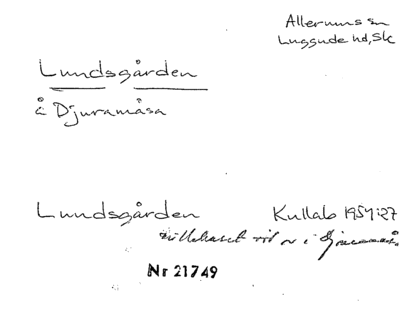 Allerums sn
Luggude hd, Sk
Lundsgården
å Djuramåsa
Lundsgården
Kullab 1954:27
i
Nr 21749